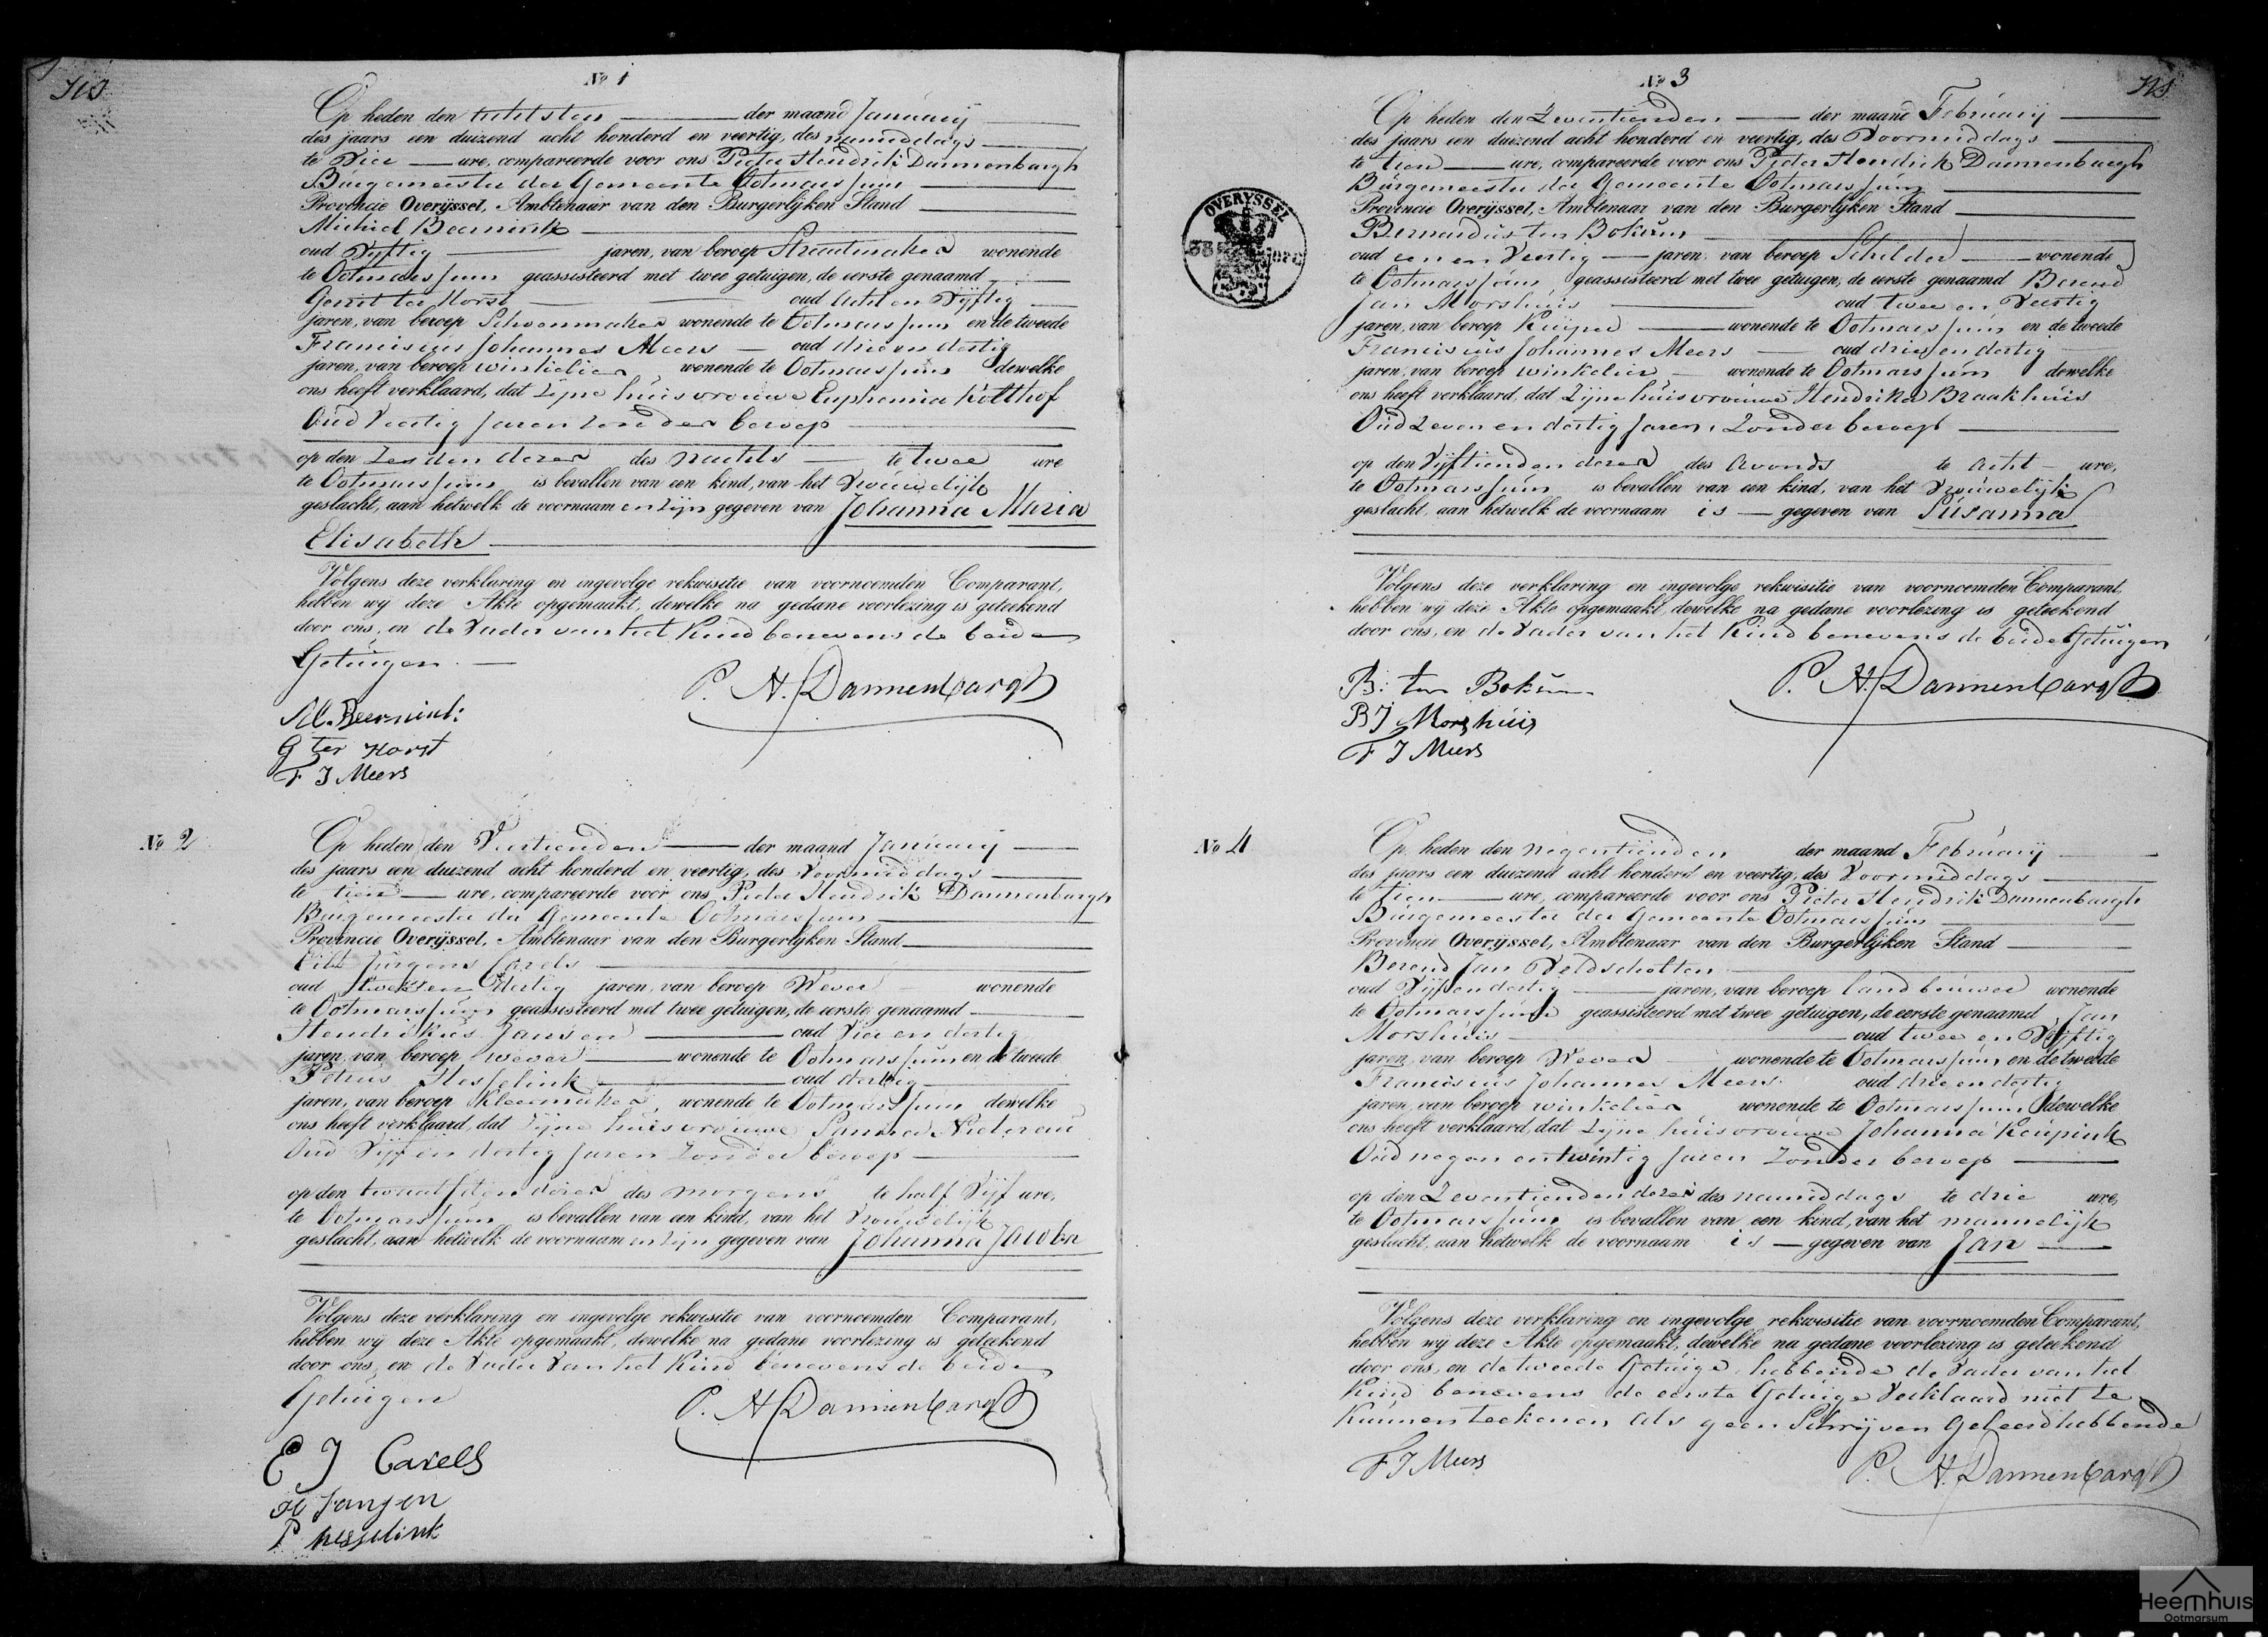 No 1
Op heden den achtsten der maand Januarij
des jaars een duizend acht honderd en veertig, des namiddags
te Vier ure, compareerde voor ons Pieter Hendrik Dannenbargh
Burgemeester der Gemeente Ootmarssum
Provincie Overijssel, Ambtenaar van den Burgerlijken Stand
Michiel Beernink
oud Vijftig jaren, van beroep Straatmaker wonende
te Ootmarssum geassisteerd met twee getuigen, de eerste genaamd
Gerrit ter Horst oud acht en Vijftig
jaren, van beroep Schoenmaker wonende te Ootmarssum en de tweede
Franciscus Johannes Meers oud drie en dertig
jaren, van beroep winkelier wonende te Ootmarssum dewelke
ons heeft verklaard, dat Zijne huisvrouwe Euphemia Kotthof
Oud Veertig Jaren zonder beroep
op den Zesden dezer des nachts te twee ure
te Ootmarssum is bevallen van een kind, van het Vrouwelijk
geslacht, aan hetwelk de voornaamen zijn gegeven van Johanna Maria
Elisabeth
Volgens deze verklaring en ingevolge rekwisitie van voornoemden Comparant,
hebben wij deze Akte opgemaakt, dewelke na gedane voorlezing is geteekend
door ons, en de Vader van het Kind benevens de beide
Getuigen
P. H. Dannenbargh
M. Beernink
G ter Horst
F J Meers
No 2
Op heden den Veertienden der maand Januarij
des jaars een duizend acht honderd en veertig, des Voormiddags
te tien ure, compareerde voor ons Pieter Hendrik Dannenbargh
Burgemeester der Gemeente Ootmarssum
Provincie Overijssel, Ambtenaar van den Burgerlijken Stand
Jurgens Carels
oud dertig jaren, van beroep Wever wonende
te Ootmarssum geassisteerd met twee getuigen, de eerste genaamd
Hendrikus Jansen oud Vier en dertig
jaren, van beroep wever wonende te Ootmarssum en de tweede
Petrus Hesselink oud dertig
jaren, van beroep Kleermaker wonende te Ootmarssum dewelke
ons heeft verklaard, dat Zijne huisvrouwe Sanna
Oud Vijf en dertig Jaren Zonder beroep
op den twaalfden dezer des morgens te half Vijf ure,
te Ootmarssum is bevallen van een kind, van het Vrouwelijk
geslacht, aan hetwelk de voornaamen zijn gegeven van Johanna Jacoba
Volgens deze verklaring en ingevolge rekwisitie van voornoemden Comparant,
hebben wij deze Akte opgemaakt, dewelke na gedane voorlezing is geteekend
door ons, en de Vader van het Kind benevens de beide
Getuigen
P. H. Dannenbargh
E J Carels
H Jansen
P Hesselink
No 3
OVERYSSEL
Op heden den Zeventienden der maand Februarij
des jaars een duizend acht honderd en veertig, des Voormiddags
te tien ure, compareerde voor ons Pieter Hendrik Dannenbargh
Burgemeester der Gemeente Ootmarssum
Provincie Overijssel, Ambtenaar van den Burgerlijken Stand
Bernardus ten Bokum
oud een en Veertig jaren, van beroep Schilder wonende
te Ootmarssum geassisteerd met twee getuigen, de eerste genaamd Berend
Jan Morshuis oud twee en Veertig
jaren, van beroep Kuiper wonende te Ootmarssum en de tweede
Franciscus Johannes Meers oud drie en dertig
jaren, van beroep winkelier wonende te Ootmarssum dewelke
ons heeft verklaard, dat Zijne huisvrouwe Hendrika Braakhuis
Oud Zeven en dertig Jaren, Zonder beroep
op den Vijftienden dezer des Avonds te acht ure,
te Ootmarssum is bevallen van een kind, van het Vrouwelijk
geslacht, aan hetwelk de voornaam is gegeven van Susanna
Volgens deze verklaring en ingevolge rekwisitie van voornoemden Comparant,
hebben wij deze Akte opgemaakt, dewelke na gedane voorlezing is geteekend
door ons, en de Vader van het Kind benevens de beide Getuigen
P. H. Dannenbargh
B. ten Bokum
B J Morshuis
F J Meers
No 4
Op heden den negentienden der maand Februarij
des jaars een duizend acht honderd en veertig, des Voormiddags
te tien ure, compareerde voor ons Pieter Hendrik Dannenbargh
Burgemeester der Gemeente Ootmarssum
Provincie Overijssel, Ambtenaar van den Burgerlijken Stand
Berend Jan Veldscholten
oud Vijf en dertig jaren, van beroep landbouwer wonende
te Ootmarssum geassisteerd met twee getuigen, de eerste genaamd Jan
Morshuis oud twee en Vijftig
jaren, van beroep Wever wonende te Ootmarssum en de tweede
Franciscus Johannes Meers oud drie en dertig
jaren, van beroep winkelier wonende te Ootmarssum dewelke
ons heeft verklaard, dat Zijne huisvrouwe Johanna Keupink
Oud negen en twintig Jaren Zonder beroep
op den Zeventienden dezer des namiddags te drie ure,
te Ootmarssum is bevallen van een kind, van het mannelijk
geslacht, aan hetwelk de voornaam is gegeven van Jan
Volgens deze verklaring en ingevolge rekwisitie van voornoemden Comparant,
hebben wij deze Akte opgemaakt, dewelke na gedane voorlezing is geteekend
door ons, en de tweede Getuige, hebbende de Vader van het
Kind benevens de eerste Getuige Verklaard niet te
Kunnen teekenen als geen Schrijven Geleerd hebbende
F J Meers
P. H. Dannenbargh
Heemhuis
Ootmarsum